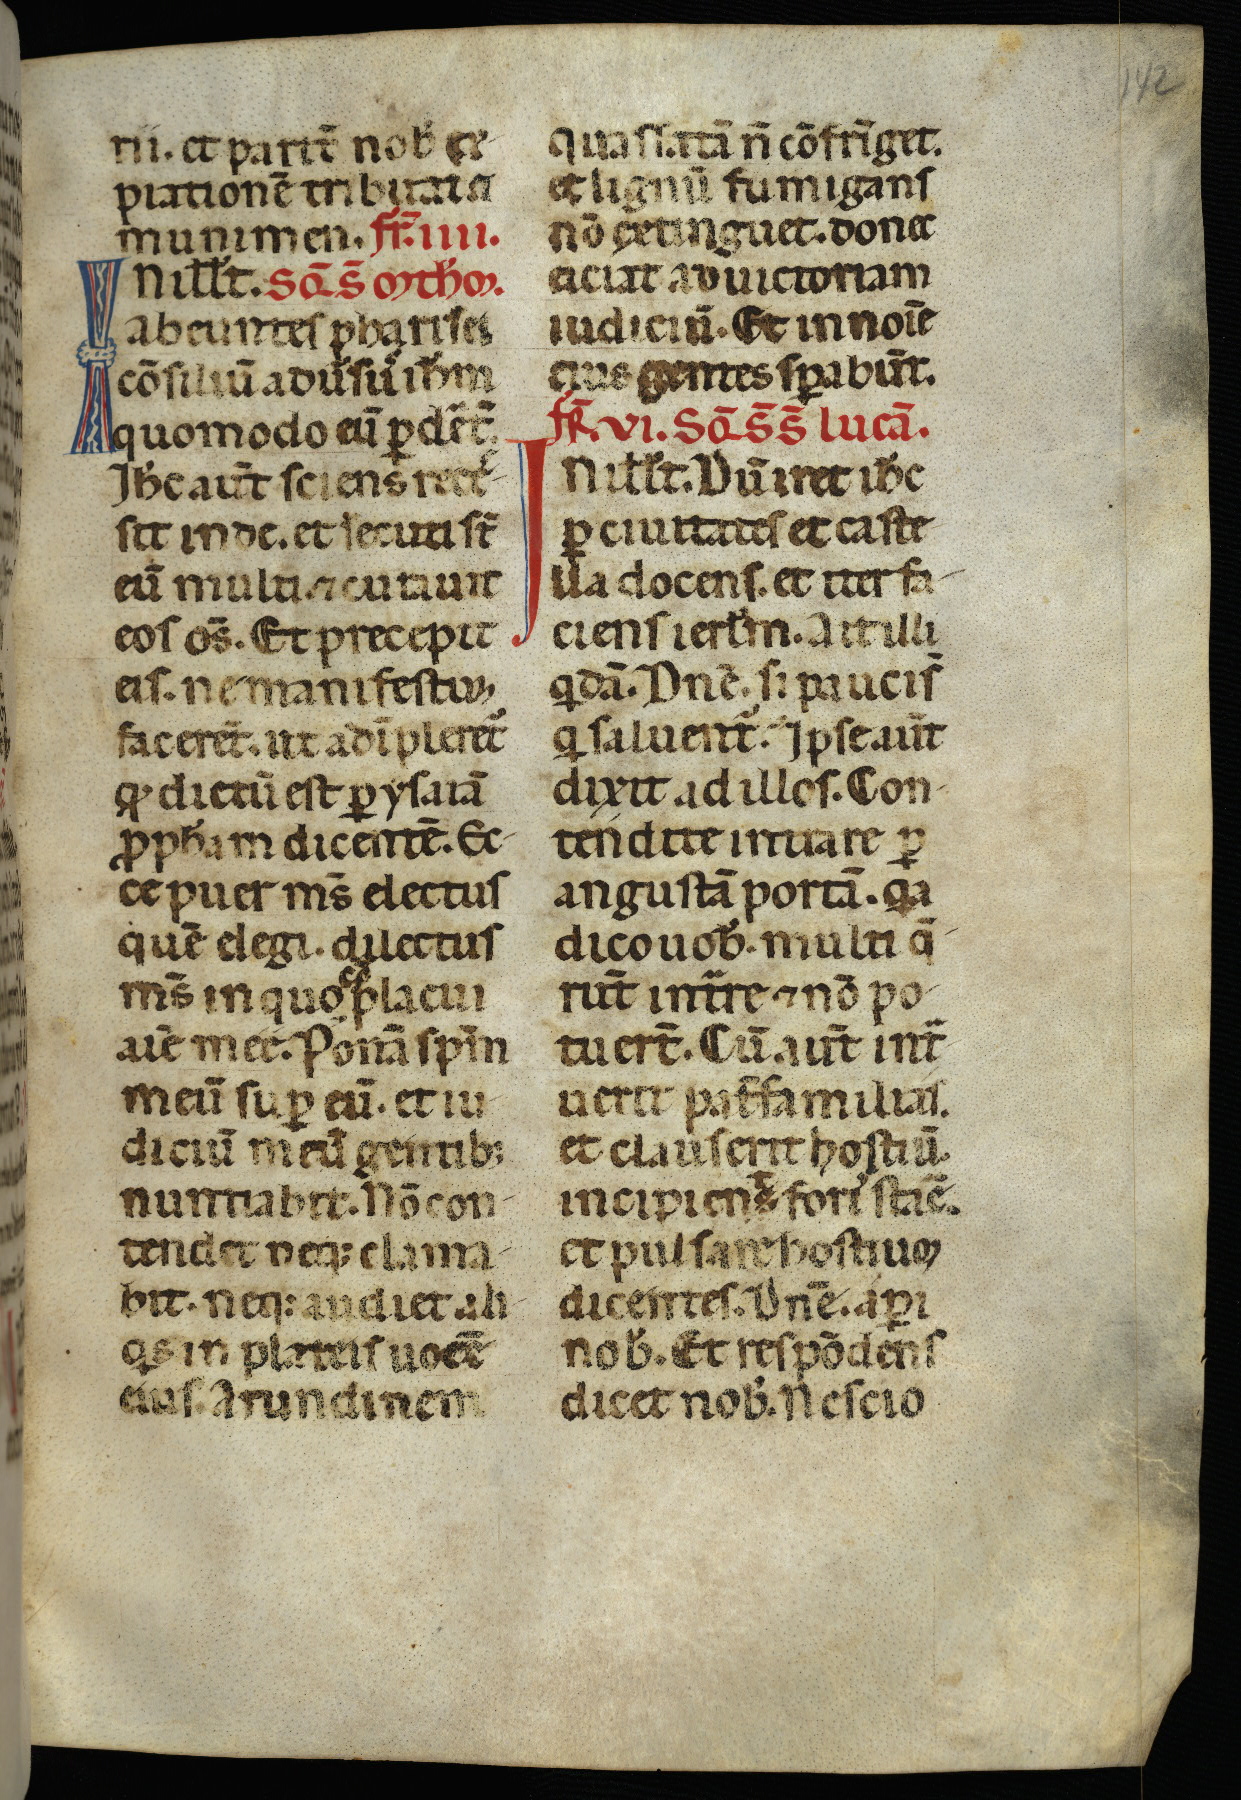 142
rii. et parit̄ nob̄ ex-
piationē tribuat a
munimen. fr̄. iiii.
IN ill̄t. Sc̄d̄ S̄ mtħm.
abeuntes pharisei
cōsiliū adūsū ih̄m
quomodo eū ꝑdēt̄.
Jh̄c aūt sciens reces-
sit inde. et secuti st̄
eū multi ⁊ curauit
eos om̄s. Et precepit
eis. ne manifestum
facerēt. ut adīpleret̄
qd̄ dictū est ꝑ ysaiā
ꝓpham dicentē. Ec-
ce puer m̄s electus
quē elegi. dilectus
m̄s in quo placui
aīe mee. Ponā sp̄m
meū suꝑ eū. et iu-
diciū meū gentibꝫ
nuntiabit. Nō con-
tendet neqꝫ clama-
bit. neqꝫ audiet ali-
qs in plateis uocē
eius. Arundinem
quassatā n̄ cōfrīget.
et lignū fumigans
nō extinguet. donec
eiciat ad uictoriam
iudiciū. Et in noīe
eius gentes sꝑabūt.
fr̄. vi. Sc̄d̄ S̄ S̄ lucā.
IN ill̄t. Dū iret ih̄c
ꝑ ciuitates et caste
lla docens. et iter fa-
ciens ierl̄m. Ait illi
qdā. Dn̄e. si pauci s̄
q saluent̄. Ipse aūt
dixit ad illos. Con-
tendite intrare ꝑ
angustā portā. qa
dico uob̄. multi q̄-
rūt int̄re ⁊ nō po-
tuert̄. Cū aūt int̄-
uerit pat̄familias.
et clauserit hostiū.
incipient foris stare.
et pulsare hostium
dicentes. Dn̄e. aꝑi
nob̄. Et respōdens
dicet nob̄. Nescio